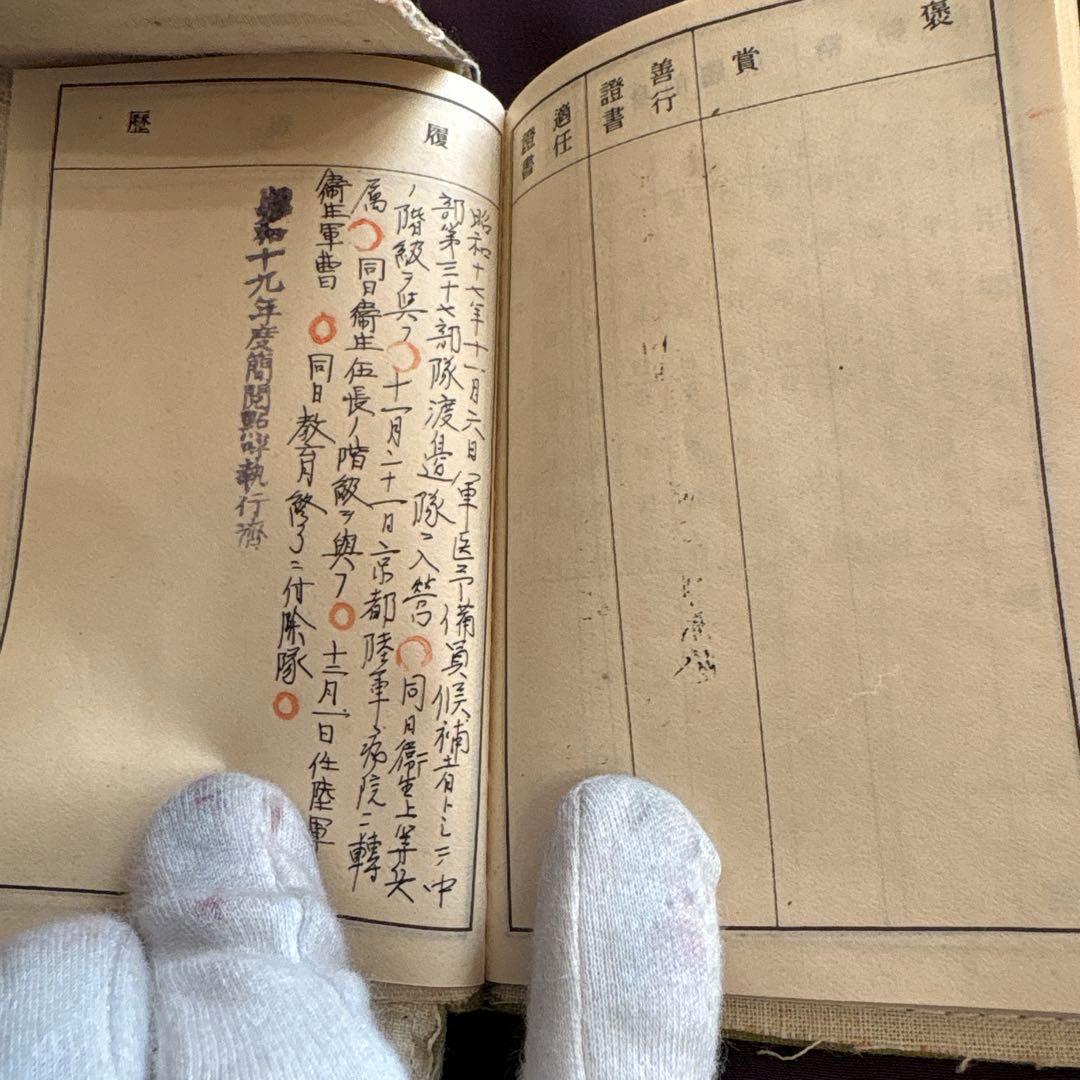 褒賞
善行證書
適任證書
履歷
昭和十七年十一月六日軍医予備員候補者トシテ中
部第三十七部隊渡邉隊ニ入営〇同日衛生上等兵
ノ階級ヲ与フ〇十一月二十一日京都陸軍病院ニ轉
属〇同日衛生伍長ノ階級ヲ與フ〇十二月一日任陸軍
衛生軍曹〇同日教育終了ニ付除隊〇
昭和十九年度簡閲點呼執行濟